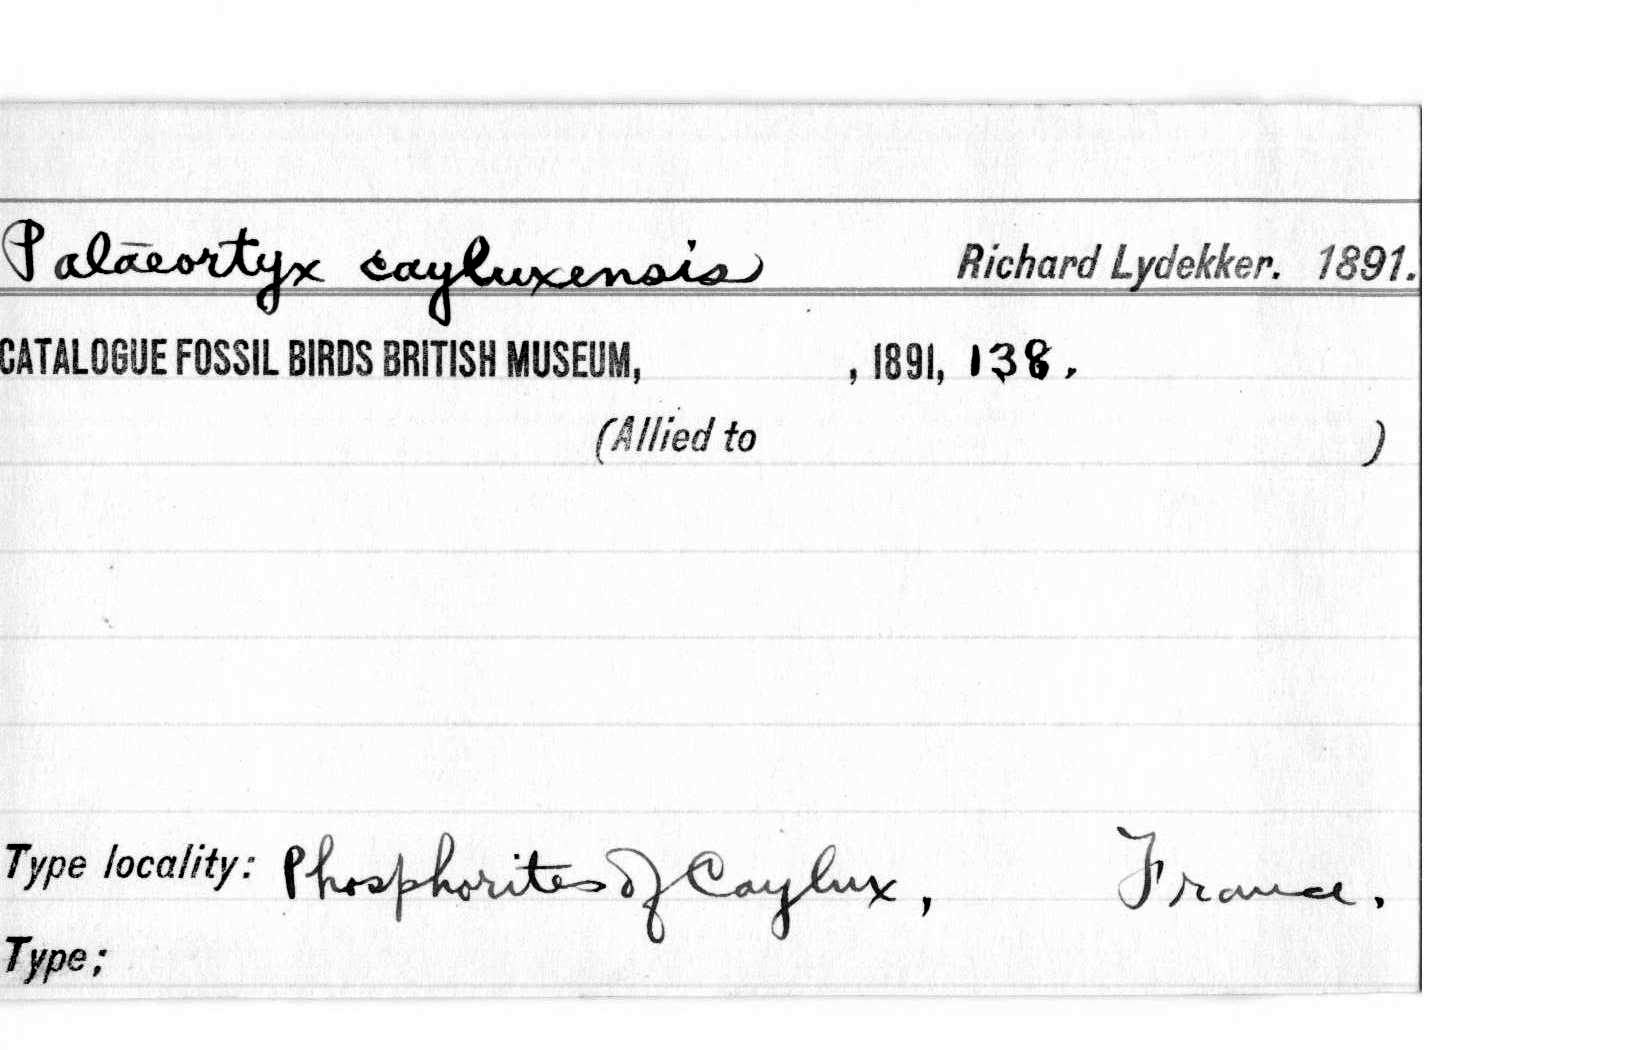 Palaeortyx cayluxensis Richard Lydekker. 1891.
CATALOGUE FOSSIL BIRDS BRITISH MUSEUM, , 1891, 138.
(Allied to )
Type locality: Phosphorites of Caylux, France.
Type;